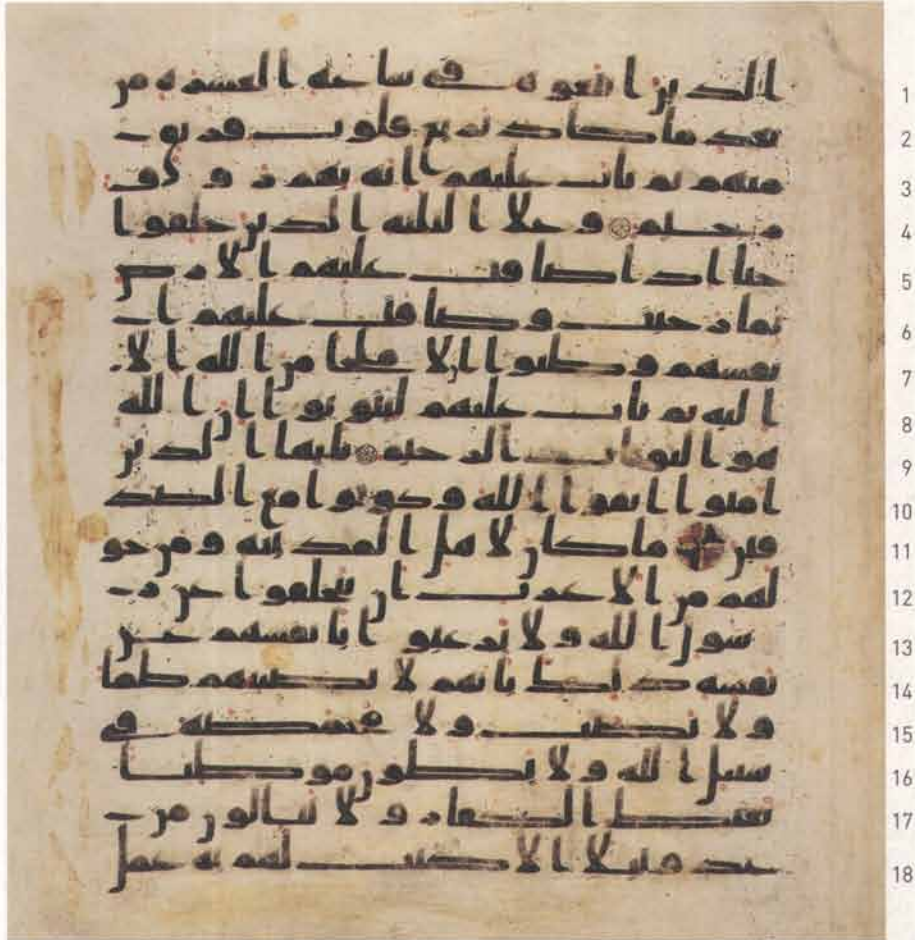 1 الذين اتبعوه في ساعة العسرة من
2 بعد ما كاد تزيغ قلوب فريق
3 منهم ثم تاب عليهم انه بهم رؤف
4 رحيم وعلا الثلثة الذين خلفوا
5 حتا اذا ضاقت عليهم الارض
6 بما رحبت وضاقت عليهم ا
7 نفسهم وظنوا ان لا ملجا من الله الا
8 اليه ثم تاب عليهم ليتوبوا ان الله
9 هو التواب الرحيم يايها الذين
10 امنوا اتقوا الله وكونوا مع الصد
11 قين ما كان لاهل المدينة ومن حو
12 لهم من الاعراب ان يتخلفوا عن ر
13 سول الله ولا يرغبوا بانفسهم عن
14 نفسه ذلك بانهم لا يصيبهم ظما
15 ولا نصب ولا مخمصة في
16 سبيل الله ولا يطون موطيا
17 يغيظ الكفار ولا ينالون من
18 عدو نيلا الا كتب لهم به عمل